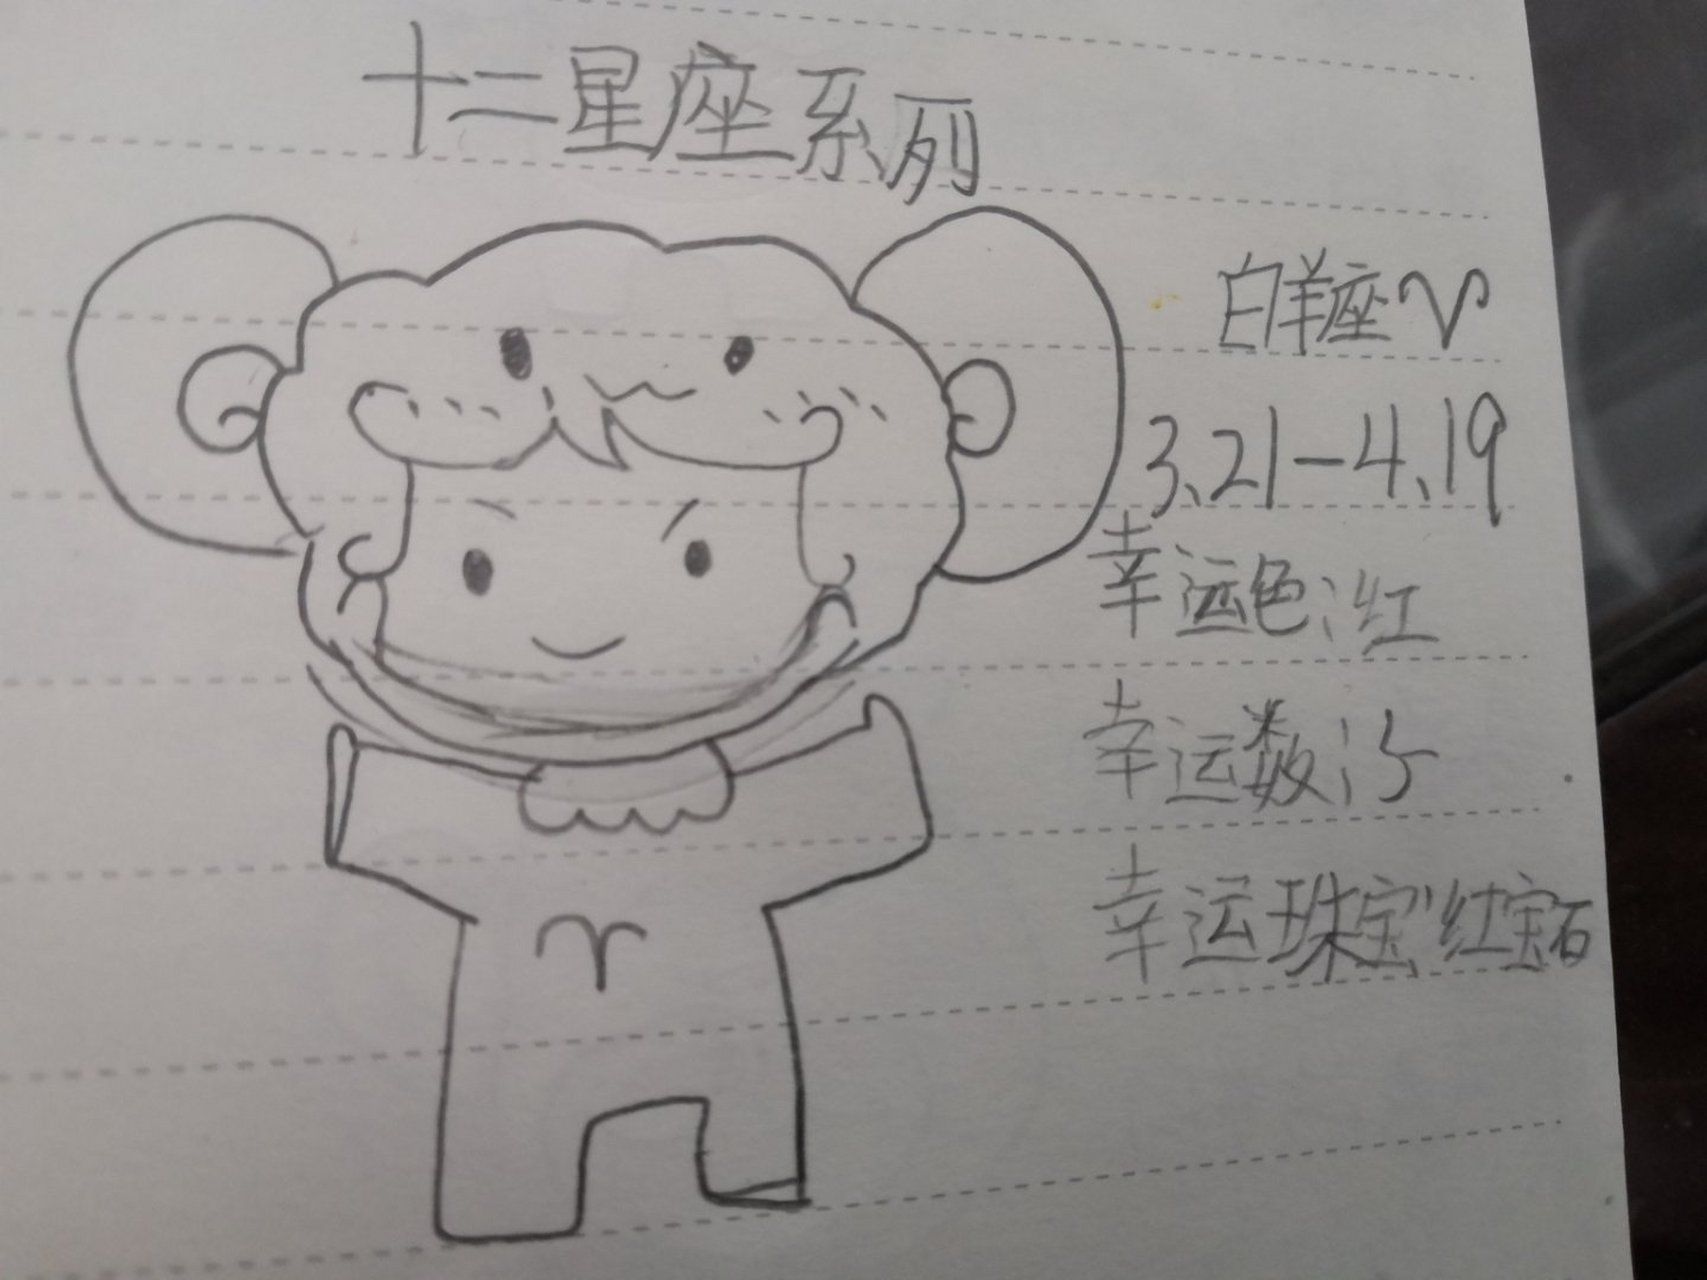 十二星座系列
白羊座♈
3.21-4.19
幸运色:红
幸运数:5
幸运珠宝:红宝石
♈